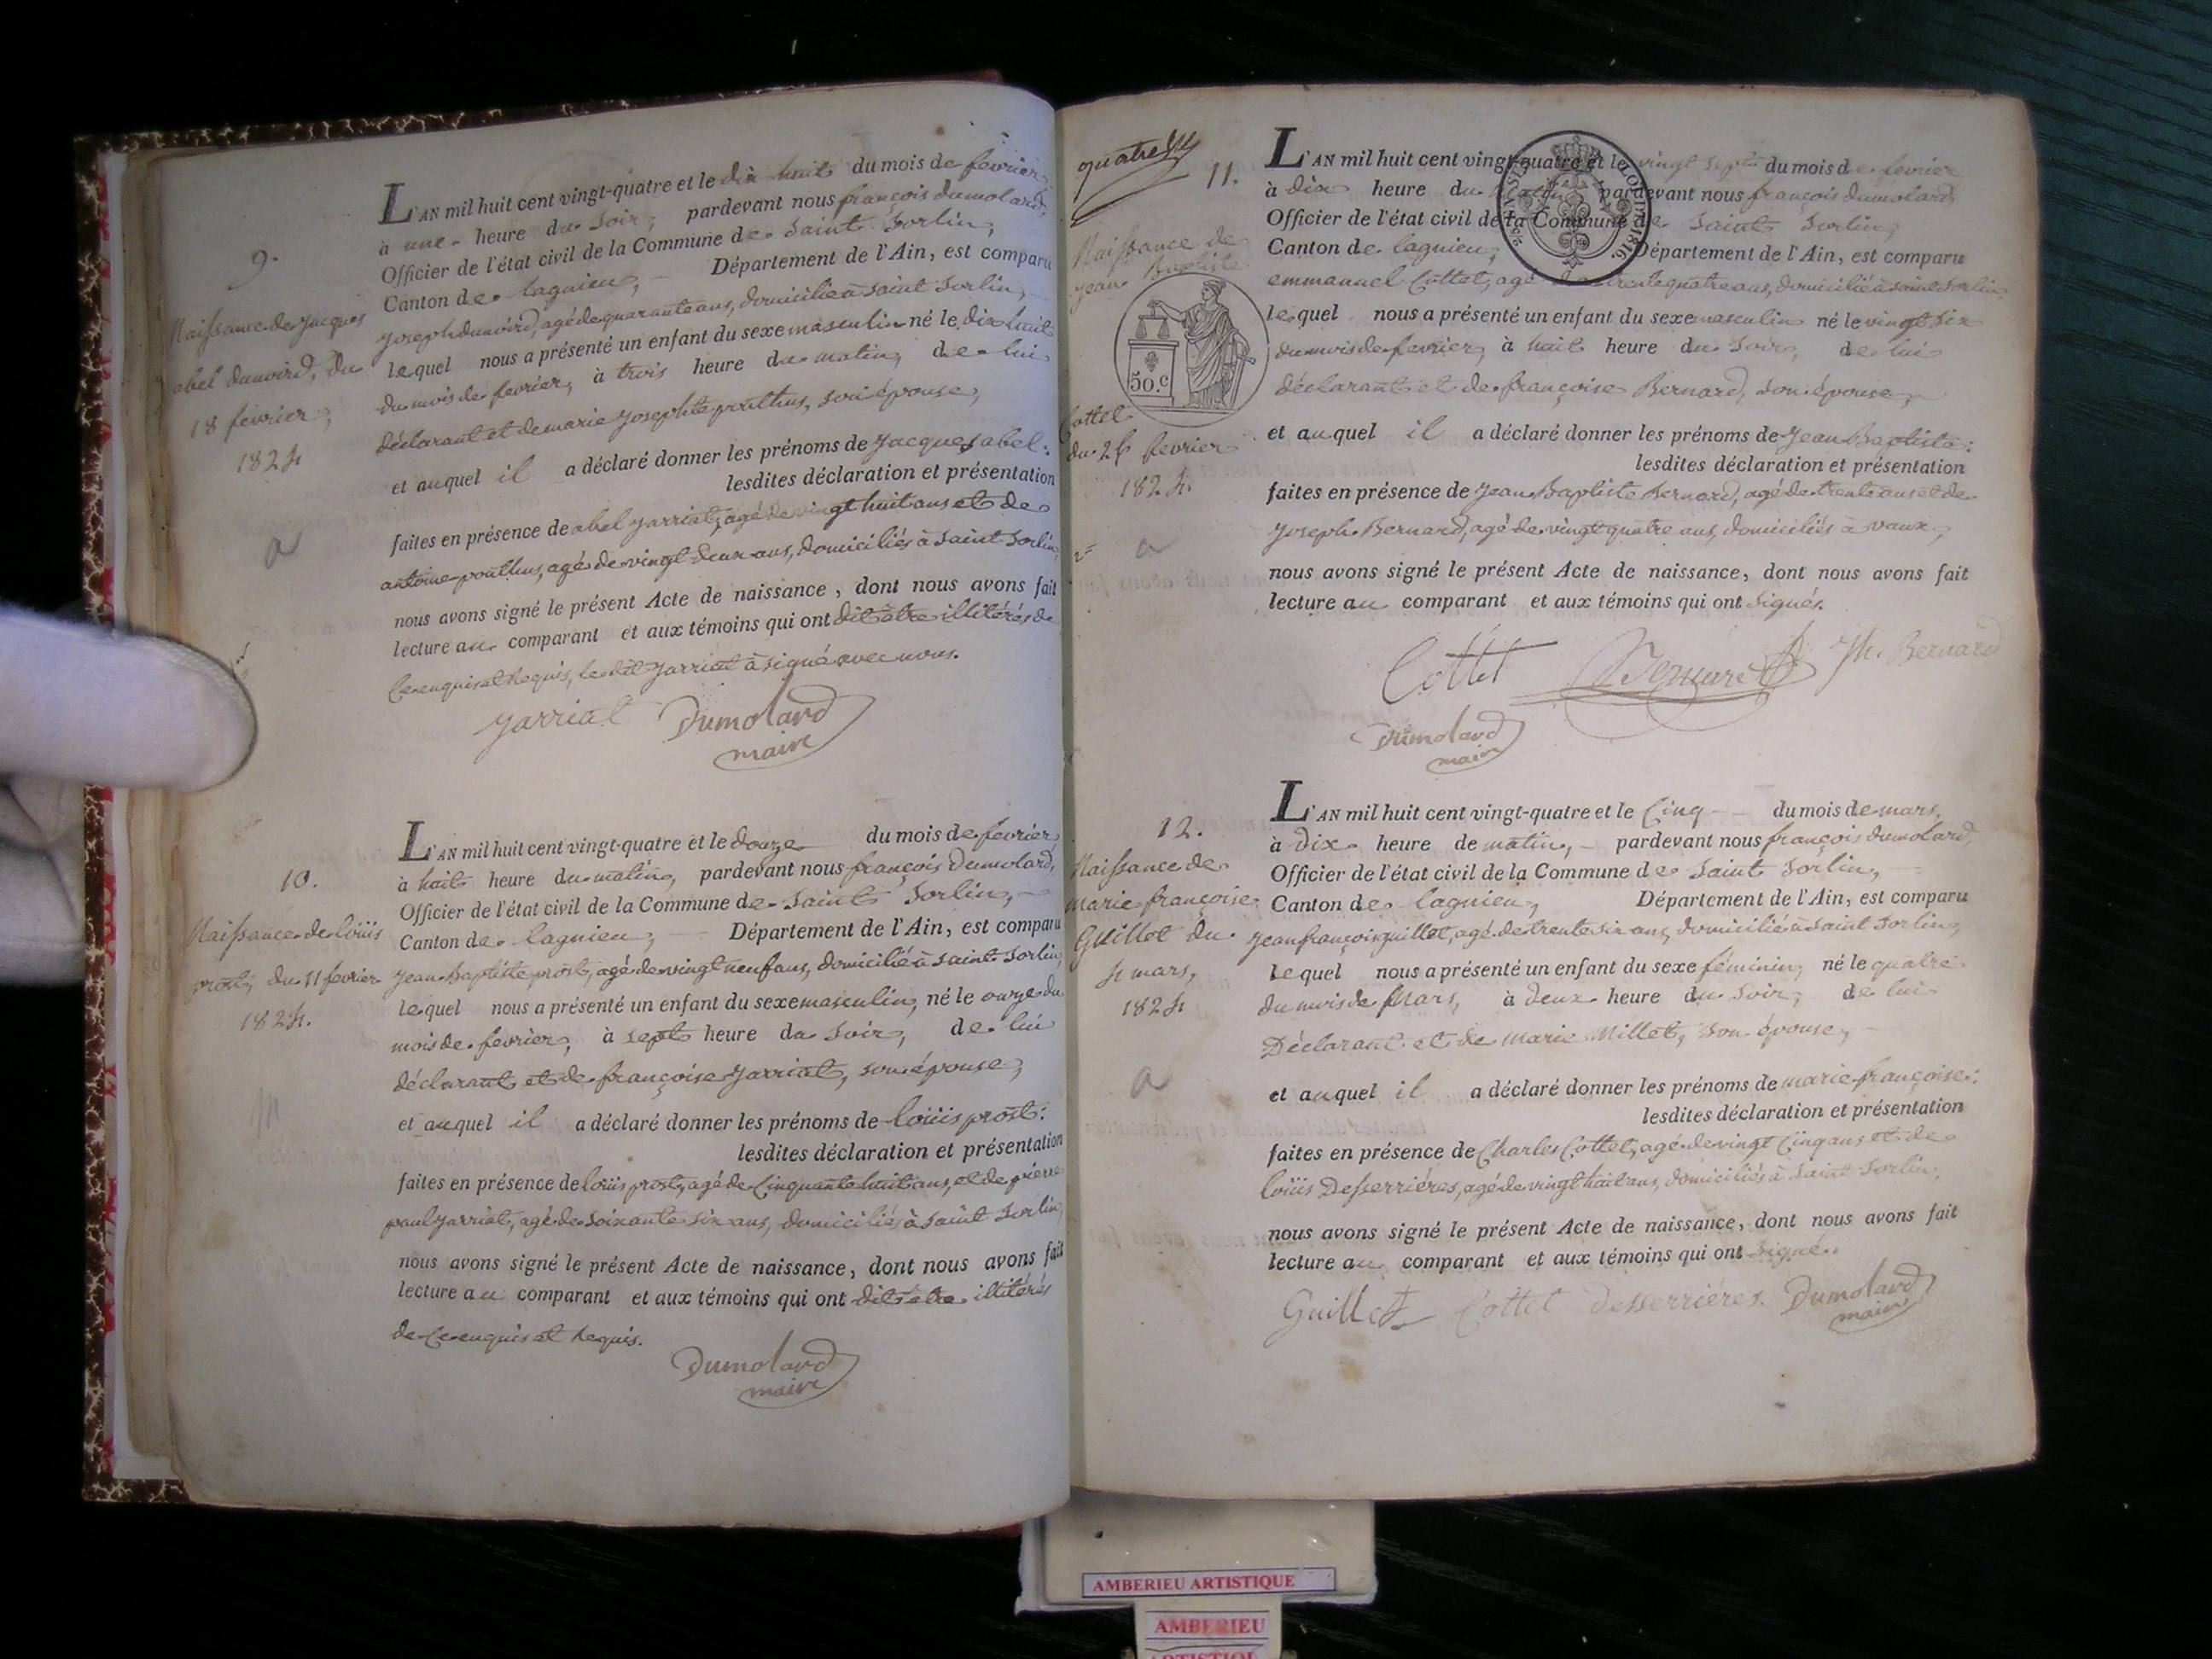 9.
Naissance de jacques
abel dunoird, du
18 fevrier,
1824
a
L'AN mil huit cent vingt-quatre et le dix huit du mois de fevrier
à une heure du soir, pardevant nous françois dumolard,
Officier de l'état civil de la Commune de saint sorlin,
Canton de lagnieu, Département de l'Ain, est comparu
joseph dunoird, agé de quarante ans, domicilié à saint sorlin,
lequel nous a présenté un enfant du sexe masculin né le dix huit
du mois de fevrier, à trois heure du matin, de lui
déclarant et de marie josephte ponthus, son épouse,
et auquel il a déclaré donner les prénoms de jacques abel:
lesdites déclaration et présentation
faites en présence de abel jarriat, agé de vingt huit ans et de
antoine ponthus, agé de vingt deux ans, domiciliés à saint sorlin,
nous avons signé le présent Acte de naissance, dont nous avons fait
lecture au comparant et aux témoins qui ont dit être illitérés de
ce enquis et Requis, le dit jarriat à signé avec nous.
jarriat Dumolard
maire
10.
Naissance de loüis
prost, du 11 fevrier
1824.
m
L'AN mil huit cent vingt-quatre et le douze du mois de fevrier
à huit heure du matin, pardevant nous françois Dumolard,
Officier de l'état civil de la Commune de saint sorlin,
Canton de lagnieu, Département de l'Ain, est comparu
jean Baptiste prost, agé de vingt neuf ans, domicilié à saint sorlin,
lequel nous a présenté un enfant du sexe masculin, né le onze du
mois de fevrier, à sept heure du soir, de lui
déclarant et de françoise jarriat, son épouse,
et auquel il a déclaré donner les prénoms de loüis prost:
lesdites déclaration et présentation
faites en présence de loüis prost, agé de Cinquante huit ans, et de pierre
paul jarriat, agé de soixante six ans, domiciliés à saint sorlin,
nous avons signé le présent Acte de naissance, dont nous avons fait
lecture au comparant et aux témoins qui ont dit être illitérés
de Ce enquis et Requis.
Dumolard
maire
quatre
11.
Naissance de
jean Baptiste
50.c
Cottet
du 26 fevrier
1824.
a
L'AN mil huit cent vingt-quatre et le vingt sept du mois de fevrier
à dix heure du matin, pardevant nous françois dumolard
Officier de l'état civil de la Commune de saint sorlin,
Canton de lagnieu, Département de l'Ain, est comparu
emmanuel Cottet, agé de trente quatre ans, domicilié à saint sorlin,
lequel nous a présenté un enfant du sexe masculin né le vingt six
du mois de fevrier, à huit heure du soir, de lui
déclarant et de françoise Bernard, son épouse,
et auquel il a déclaré donner les prénoms de jean Baptiste:
lesdites déclaration et présentation
faites en présence de jean Baptiste Bernard, agé de trente ans et de
joseph Bernard, agé de vingt quatre ans, domiciliés à vaux,
nous avons signé le présent Acte de naissance, dont nous avons fait
lecture au comparant et aux témoins qui ont signés.
Cottet Bernard Jh. Bernard
Dumolard
maire
12.
Naissance de
marie françoise
Guillot du
4 mars,
1824
a
L'AN mil huit cent vingt-quatre et le Cinq du mois de mars,
à dix heure de matin, pardevant nous françois dumolard,
Officier de l'état civil de la Commune de saint sorlin,
Canton de lagnieu, Département de l'Ain, est comparu
jean françois guillet, agé de trente six ans, domicilié à saint sorlin,
lequel nous a présenté un enfant du sexe féminin, né le quatre
du mois de Mars, à deux heure du soir, de lui
Déclarant et de marie Millet, son épouse,
et auquel il a déclaré donner les prénoms de marie françoise:
lesdites déclaration et présentation
faites en présence de Charles Cottet, agé de vingt Cinq ans et de
loüis Desserriéres, agé de vingt huit ans, domiciliés à saint sorlin,
nous avons signé le présent Acte de naissance, dont nous avons fait
lecture au comparant et aux témoins qui ont signé.
Guillet Cottet desserriéres. Dumolard
maire
AMBERIEU ARTISTIQUE
AMBERIEU
ARTISTIQUE